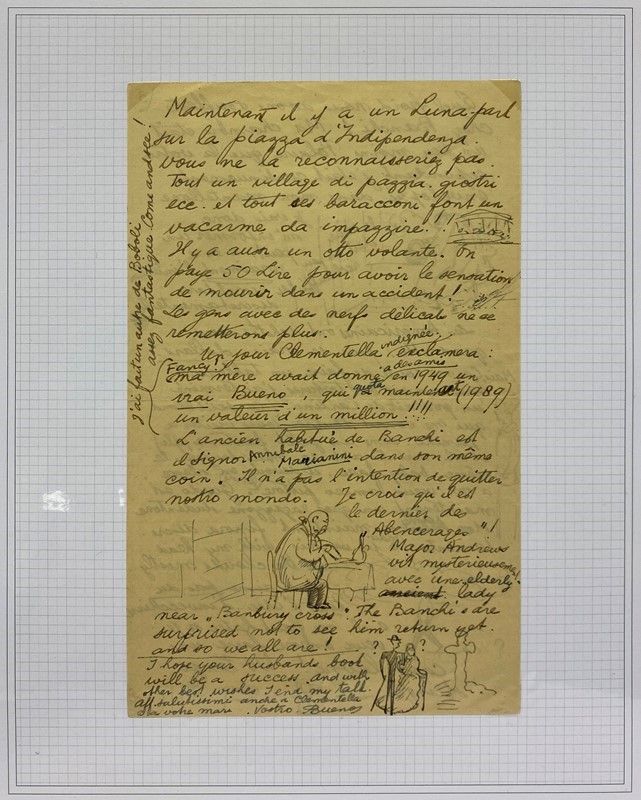 Maintenant il y a un Luna-park
sur la piazza d'Indipendenza.
vous ne la reconnaisseriez pas.
Tout un village di pazzia. giostri
ecc. et tout ces baracconi font un
vacarme da impazzire. !!
Il y a aussi un otto volante. On
paye 50 Lire pour avoir le sensation
de mourir dans un accident!
Les gens avec des nerfs délicats ne se
remetterons plus.
Un jour Clementella indignée exclamera :
Fancy! ma mère avait donné a des amis en 1949 un
vrai Bueno, qui quota maintenant (1989)
un valeur d'un million !!!!
L'ancien habitué de Banchi est
il signor Annibale Marianini dans son même
coin. Il n'a pas l'intention de quitter
nostro mondo. Je crois qu'il est
le dernier des
Abencerages"!
Major Andrews
vit mysterieusement
avec une elderly
lady
near "Banbury cross". The Banchi's are
surprised not to see him return yet.
and so we all are!
I hope your husbands book
will be a success and with
other best wishes I end my talk.
aff. salutissimi anche a Clementella
e a votre mari. Vostro Bueno
J'ai fait un autre de Boboli
assez fantastique Come and see!
? ?